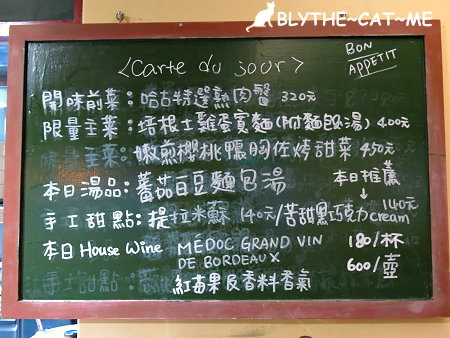 BLYTHE~CAT~ME
BON
APPETIT
<Carte du jour>
開味前菜:哈古特選熟肉醬 320元
限量主菜:培根土雞蛋寬麵(附麵飽、湯) 400元
主菜:嫩煎櫻桃鴨胸佐烤甜菜 450元
本日湯品:蕃茄白豆麵包湯 本日推薦
↓
手工甜點:提拉米蘇 140元/苦甜點巧克力cream 140元
本日House Wine MÉDOC GRAND VIN 180/杯
DE BORDEAUX 600/壺
紅莓果及香料香氣